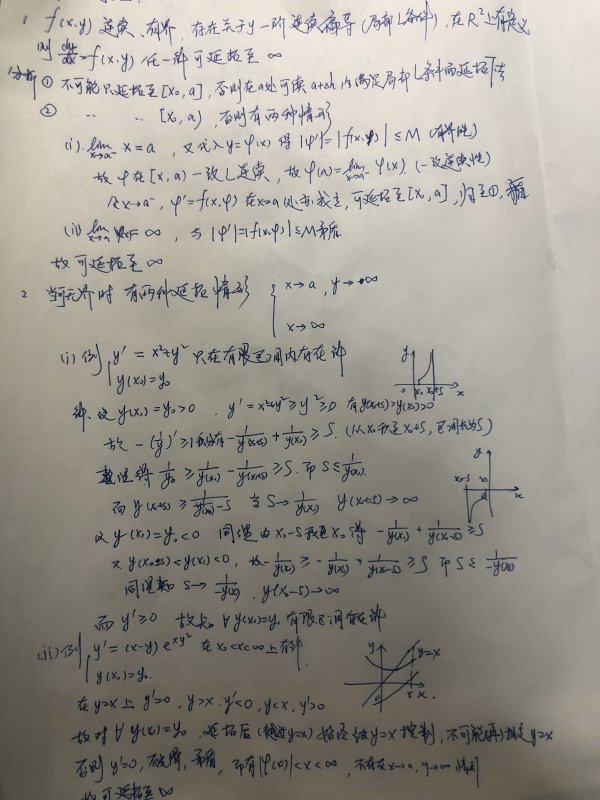 1. f(x,y) 连续、有界, 存在关于y一阶连续偏导(局部L条件), 在R²上有定义
则 dy/dx = f(x,y) 任一解可延拓至 ∞
分析 ① 不可能只延拓至[x₀,a], 否则在a处可续a+h内满足局部L条件而延拓
② 〃 〃 [x₀,a), 否则有两种情形
(i). lim x→a⁻ x=a, 又代入y=φ(x) 得 |φ'|=|f(x,φ)| ≤M (有界性)
故φ在[x₀,a)一致连续, 故φ(a)=lim x→a⁻ φ(x) (一致连续性)
令x→a⁻, φ'=f(x,φ) 在x=a处亦成立, 可延拓至[x₀,a], 归至①, 矛盾
(ii) lim x→a = ∞, 与|φ'|=|f(x,φ)|≤M矛盾
故可延拓至∞
2 当f无界时 有两种延拓情形 { x→a, y→∞
x→∞
(i) 例 { y'=x²+y² 只在有限区间内存在解
y(x₀)=y₀
y x₀ x₀+s x
解. 设 y(x₀)=y₀>0, y'=x²+y²≥y²≥0 有y(x₀+s)>y(x₀)>0
故 -(1/y)'≥1 积分有 -1/y(x₀+s) + 1/y(x₀) ≥ S. (从x₀积至x₀+s, 区间长为S)
整理得 1/y₀ ≥ 1/y(x₀) - 1/y(x₀+s) ≥ S. 即 S≤1/y(x₀).
而 y(x₀+s) ≥ 1/(1/y(x₀)-S) 当S→1/y(x₀) y(x₀+s)→∞
y x₀-s x₀ x
设 y(x₀)=y₀<0 同理由x₀-s积至x₀得 -1/y(x₀) + 1/y(x₀-s) ≥S
又 y(x₀-s)<y(x₀)<0, 故 -1/y(x₀) ≥ -1/y(x₀) + 1/y(x₀-s) ≥ S 即 S≤ 1/-y(x₀)
同理知 S→ 1/-y(x₀), y(x₀-s)→∞
而 y'≥0 故 ∀ y(x₀)=y₀ 有限区间存在解
(ii) 例 { y'=(x-y)e^{xy²} 在x₀<x<∞上有解.
y(x₀)=y₀.
y y=x 0 x
在y=x上 y'=0, y>x y'<0, y<x, y'>0
故对 ∀ y(x₀)=y₀, 延拓后(越过y=x)始终被y=x控制, 不可能再y=x
否则y'=0, 矛盾, 即有|φ(x)|<x<∞, 不存在x→a, y→∞情形
故可延拓至∞